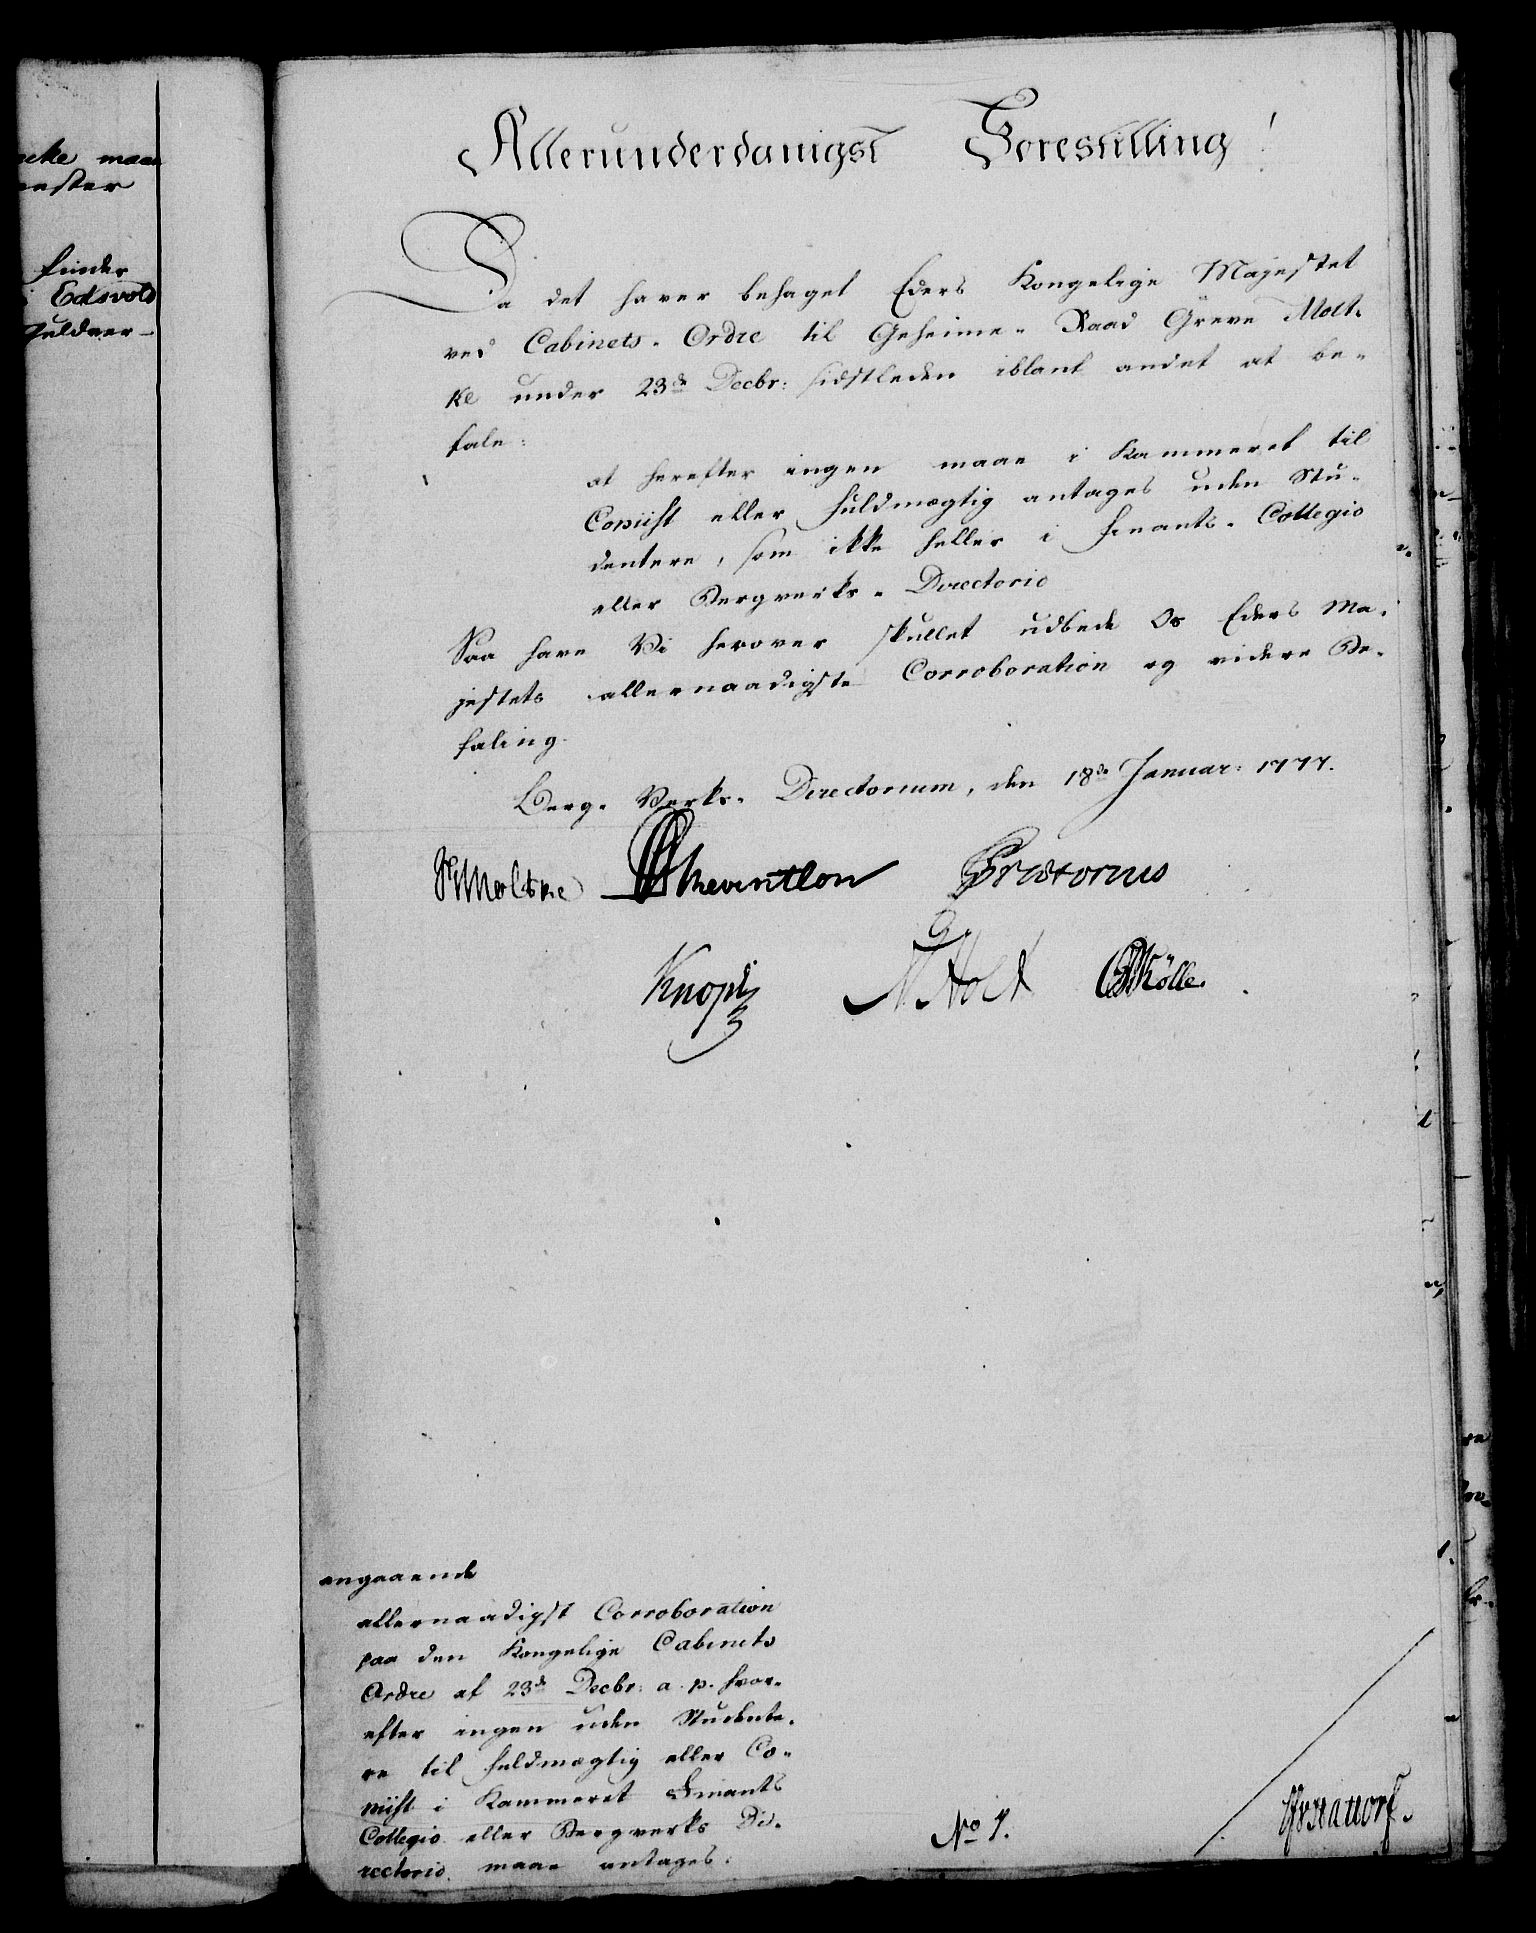 ncke maae
nester
finder
i Edsvold
Guldver-
Allerunderdanigst Forestilling!
Da det haver behaget Eders Kongelige Majestet
ved Cabinets-Ordre til Geheime-Raad Greve Molt-
ke under 23de Decbr: sidstleden iblant andet at be-
fale:
at herefter ingen maae i Kammeret til
Copiist eller Fuldmægtig antages uden Stu-
dentere, som ikke heller i Finants-Collegio
eller Bergverks-Directorio
Saa have Vi herover skullet udbede Os Eders Ma-
jestets allernaadigste Corroboration og videre Be-
faling.
Berg-Verks-Directorium, den 18de Januar: 1777.
Moltke Reventlou Prætorius
Knoph N Holt Mölle.
angaaende
allernaadigst Corroboration
paa den Kongelige Cabinets
Ordre af 23de Decbr: a. p. hvor-
efter ingen uden Studente-
re til Fuldmægtig eller Co-
piist i Kammeret Finants
Collegio eller Bergverks Di-
rectorio maae antages.
No 7.